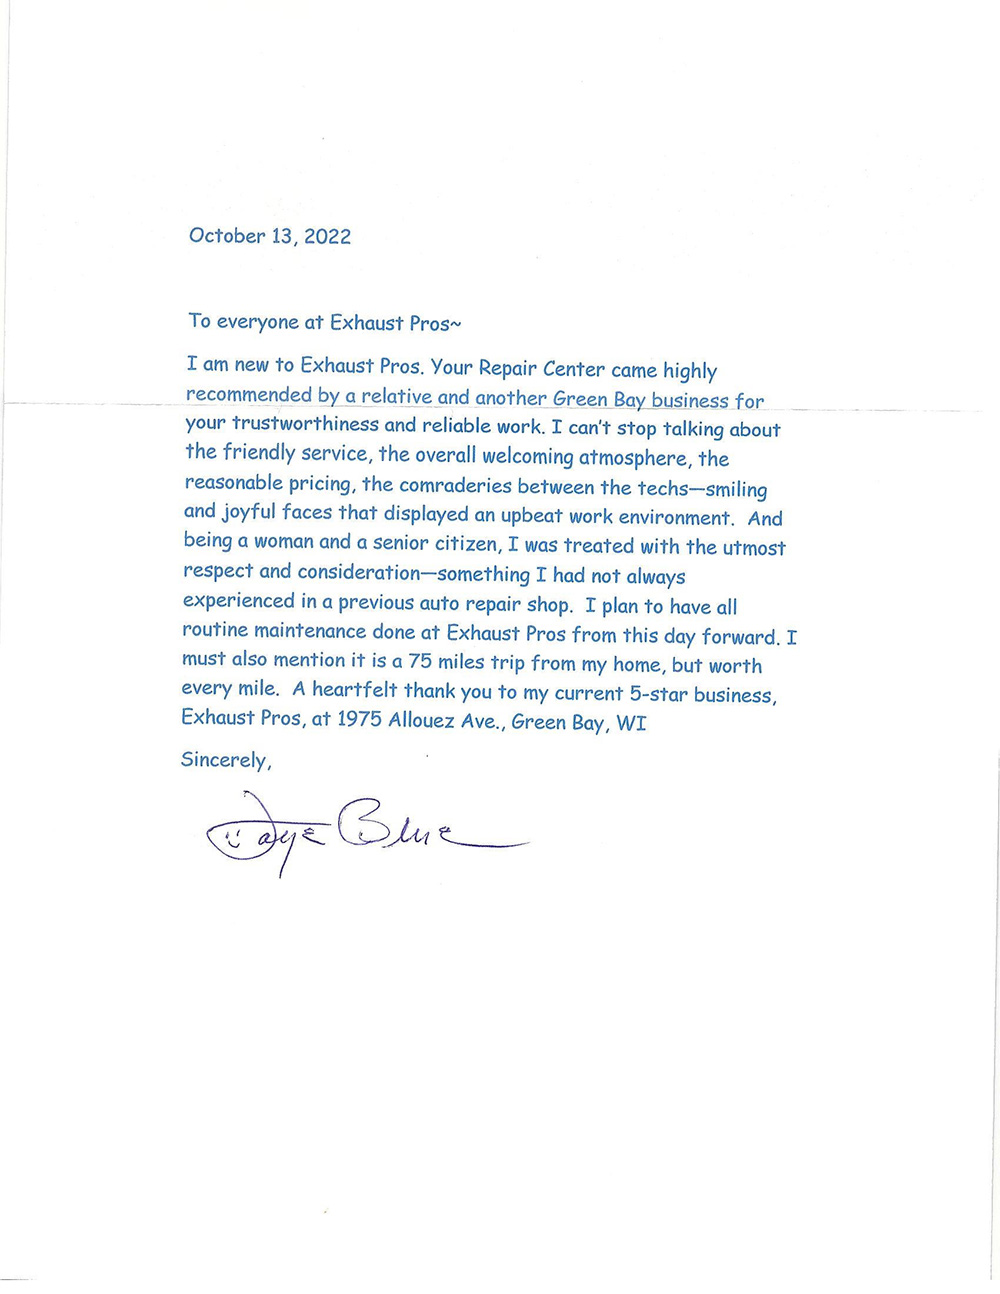 October 13, 2022
To everyone at Exhaust Pros~
I am new to Exhaust Pros. Your Repair Center came highly
recommended by a relative and another Green Bay business for
your trustworthiness and reliable work. I can't stop talking about
the friendly service, the overall welcoming atmosphere, the
reasonable pricing, the comraderies between the techs—smiling
and joyful faces that displayed an upbeat work environment.  And
being a woman and a senior citizen, I was treated with the utmost
respect and consideration—something I had not always
experienced in a previous auto repair shop.  I plan to have all
routine maintenance done at Exhaust Pros from this day forward. I
must also mention it is a 75 miles trip from my home, but worth
every mile.  A heartfelt thank you to my current 5-star business,
Exhaust Pros, at 1975 Allouez Ave., Green Bay, WI
Sincerely,
Blue